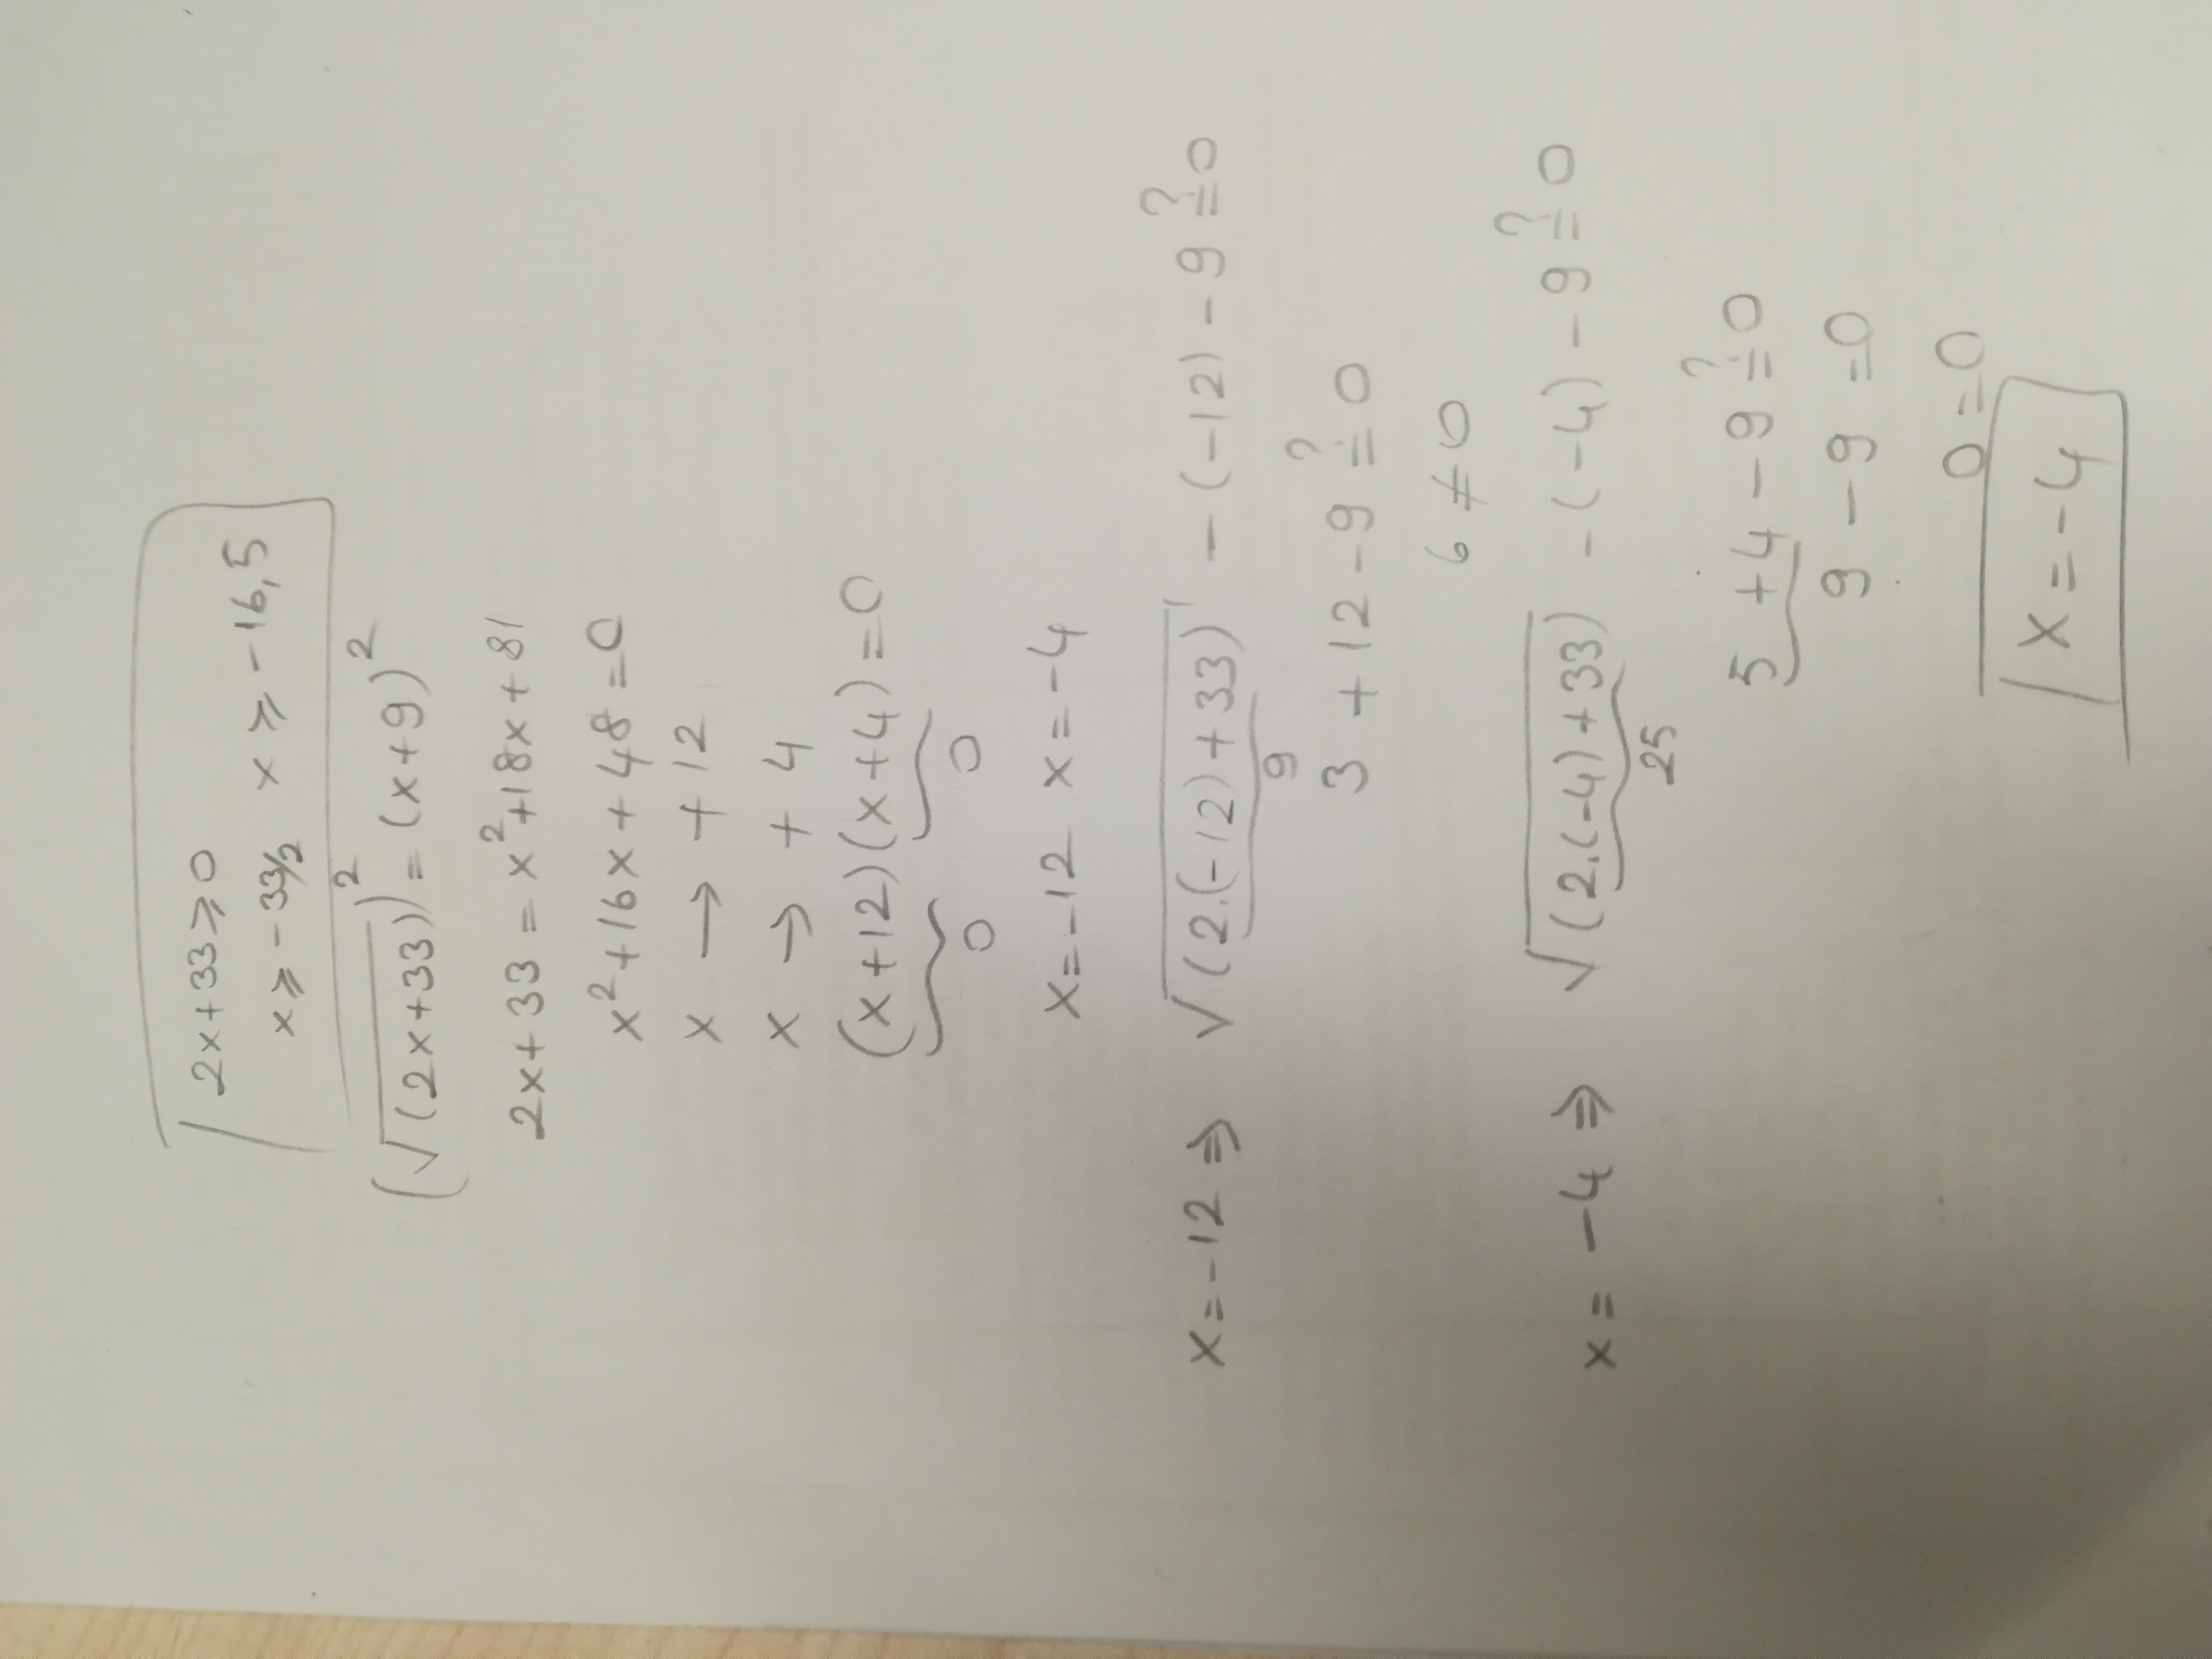 2x+33⩾0
x⩾-33/2 x⩾-16,5
(√(2x+33))² = (x+9)²
2x+33 = x²+18x+81
x²+16x+48=0
x → +12
x → +4
(x+12)(x+4)=0
0 0
x=-12 x=-4
x=-12 ⇒ √(2.(-12)+33) - (-12) - 9 ≟ 0
9
3 + 12 - 9 ≟ 0
6 ≠ 0
x = -4 ⇒ √(2.(-4)+33) - (-4) - 9 ≟ 0
25
5 + 4 - 9 ≟ 0
9 - 9 = 0
0 = 0
x = -4